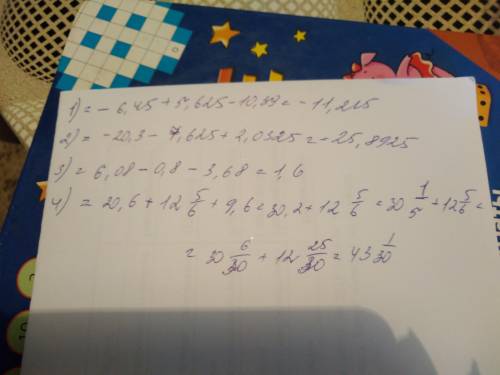 1) = - 6,45 + 5,625 - 10,39 = - 11,215
2) = - 20,3 - 7,625 + 2,0325 = - 25,8925
3) = 6,08 - 0,8 - 3,68 = 1,6
4) = 20,6 + 12 5/6 + 9,6 = 30,2 + 12 5/6 = 30 1/5 + 12 5/6 =
= 30 6/30 + 12 25/30 = 43 1/30